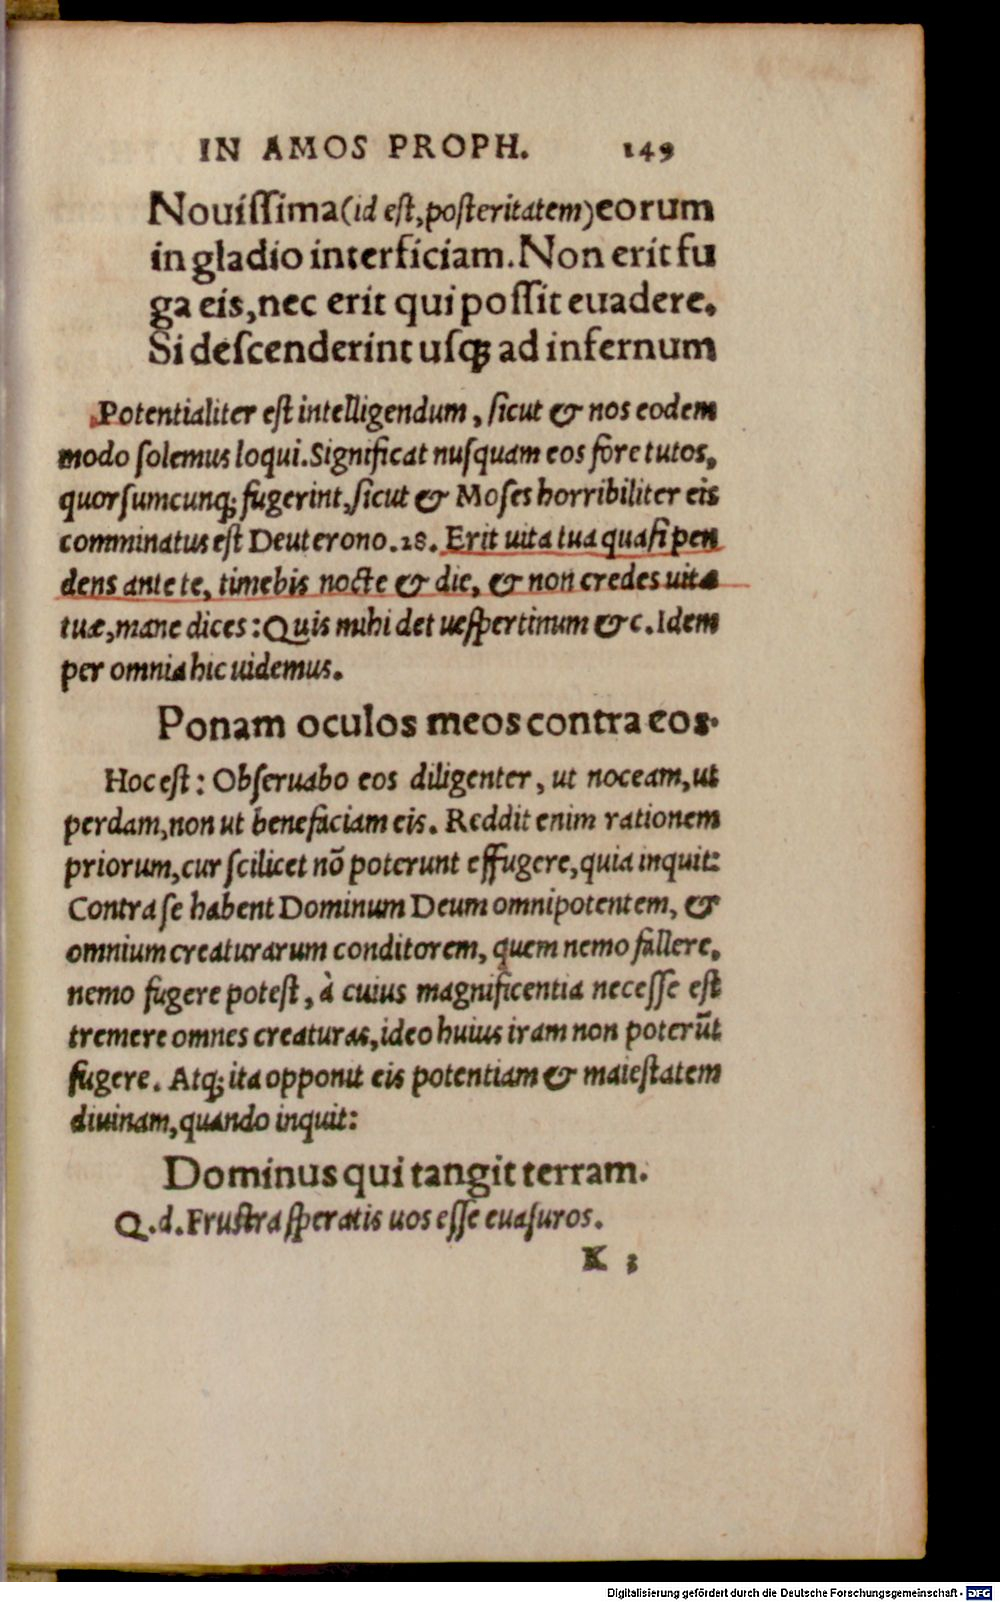 IN AMOS PROPH. 149
Nouiſſima (id eſt, poſteritatem) eorum
in gladio interficiam. Non erit fu
ga eis, nec erit qui poſſit euadere.
Si deſcenderint uſq; ad infernum
Potentialiter eſt intelligendum, ſicut & nos eodem
modo ſolemus loqui. Significat nuſquam eos fore tutos,
quorſumcunq; fugerint, ſicut & Moſes horribiliter eis
comminatus eſt Deuterono. 28. Erit uita tua quaſi pen
dens ante te, timebis nocte & die, & non credes uitæ
tuæ, mane dices: Quis mihi det ueſpertinum &c. Idem
per omnia hic uidemus.
Ponam oculos meos contra eos.
Hoc eſt: Obſeruabo eos diligenter, ut noceam, ut
perdam, non ut benefaciam eis. Reddit enim rationem
priorum, cur ſcilicet nõ poterunt effugere, quia inquit:
Contra ſe habent Dominum Deum omnipotentem, &
omnium creaturarum conditorem, quem nemo fallere,
nemo fugere poteſt, à cuius magnificentia neceſſe eſt
tremere omnes creaturas, ideo huius iram non poterūt
fugere. Atq; ita opponit eis potentiam & maieſtatem
diuinam, quando inquit:
Dominus qui tangit terram.
Q. d. Fruſtra ſperatis uos eſſe euaſuros.
K 3
Digitalisierung gefördert durch die Deutsche Forschungsgemeinschaft - DFG